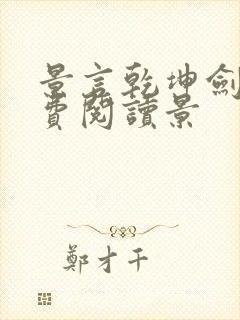 景言乾坤劍
費閱讀景
鄭才千